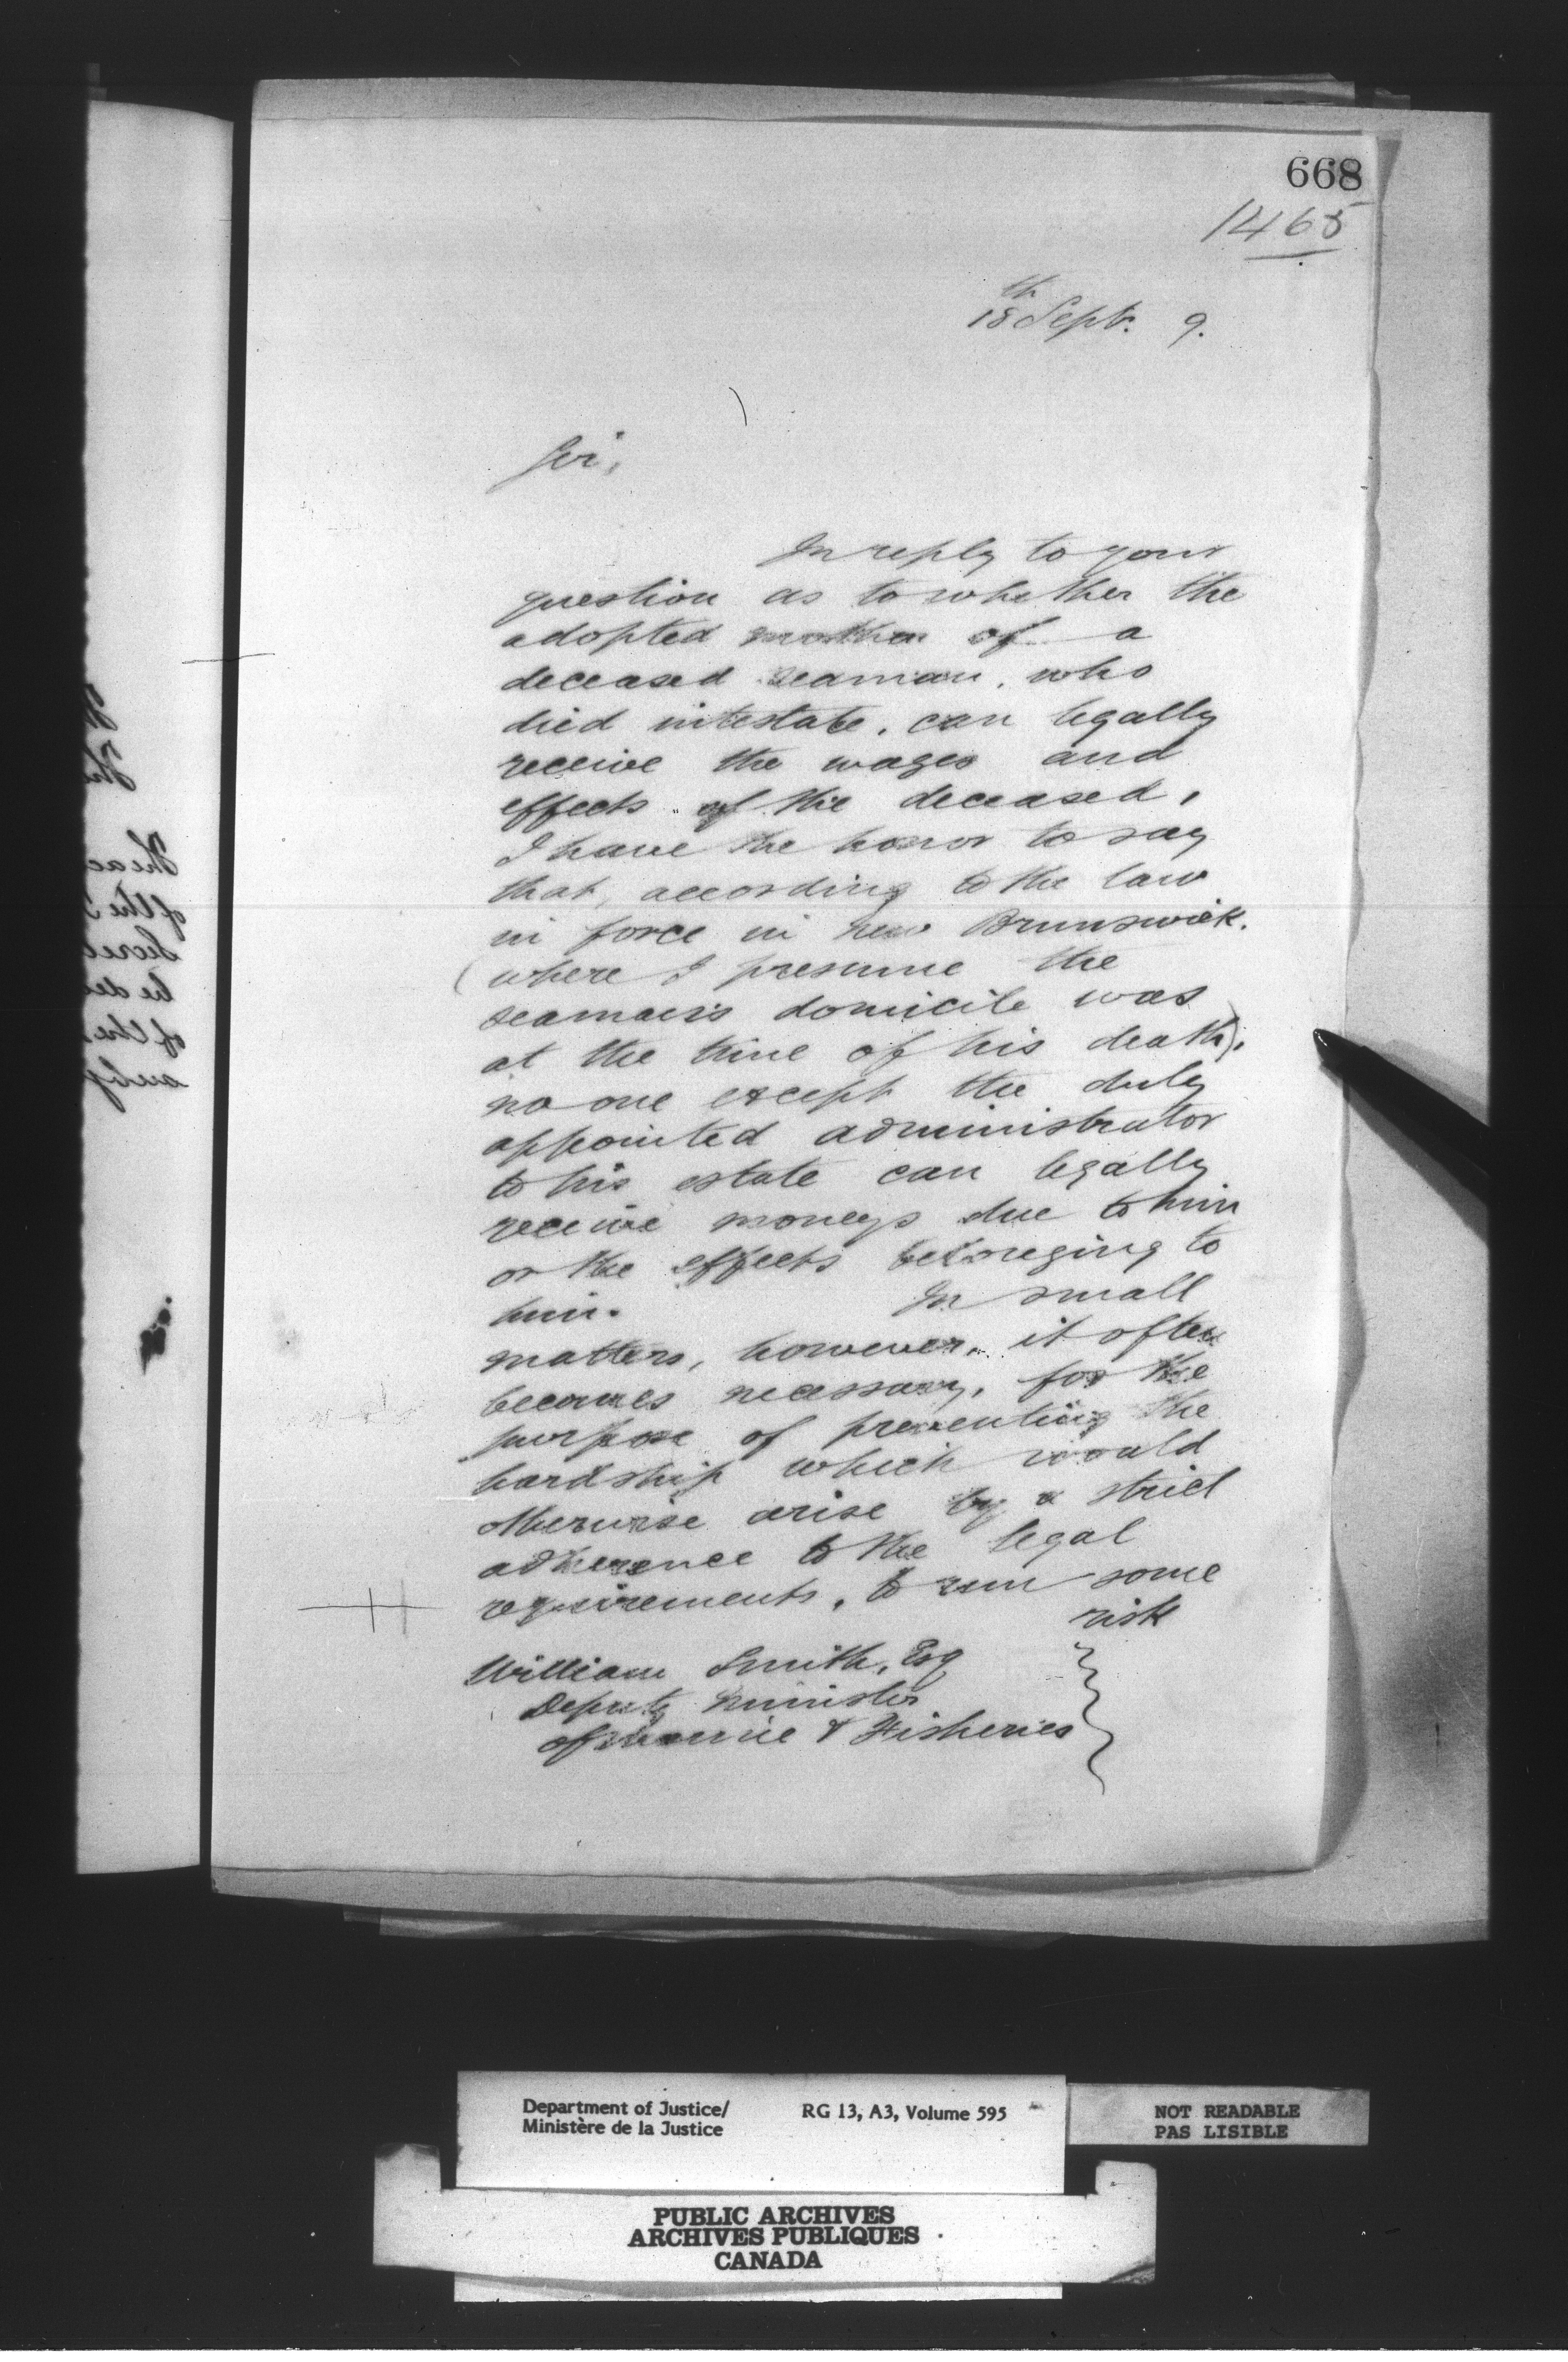 668
1465
18th Sept. 9.
Sir,
In reply to your
question as to whether the
adopted mother of a
deceased seaman, who
died intestate, can legally
receive the wages and
effects of the deceased,
I have the honor to say
that, according to the law
in force in New Brunswick,
(where I presume the
seaman's domicile was
at the time of his death),
no one except the duly
appointed administrator
to his estate can legally
receive moneys due to him
or the effects belonging to
him. In small
matters, however, it often
becomes necessary, for the
purpose of preventing the
hardship which would
otherwise arise by a strict
adherence to the legal
requirements, to run some
risk
William Smith, Esq
Deputy Minister
of Marine & Fisheries
Department of Justice/
Ministère de la Justice
RG 13, A3, Volume 595
NOT READABLE
PAS LISIBLE
PUBLIC ARCHIVES
ARCHIVES PUBLIQUES
CANADA